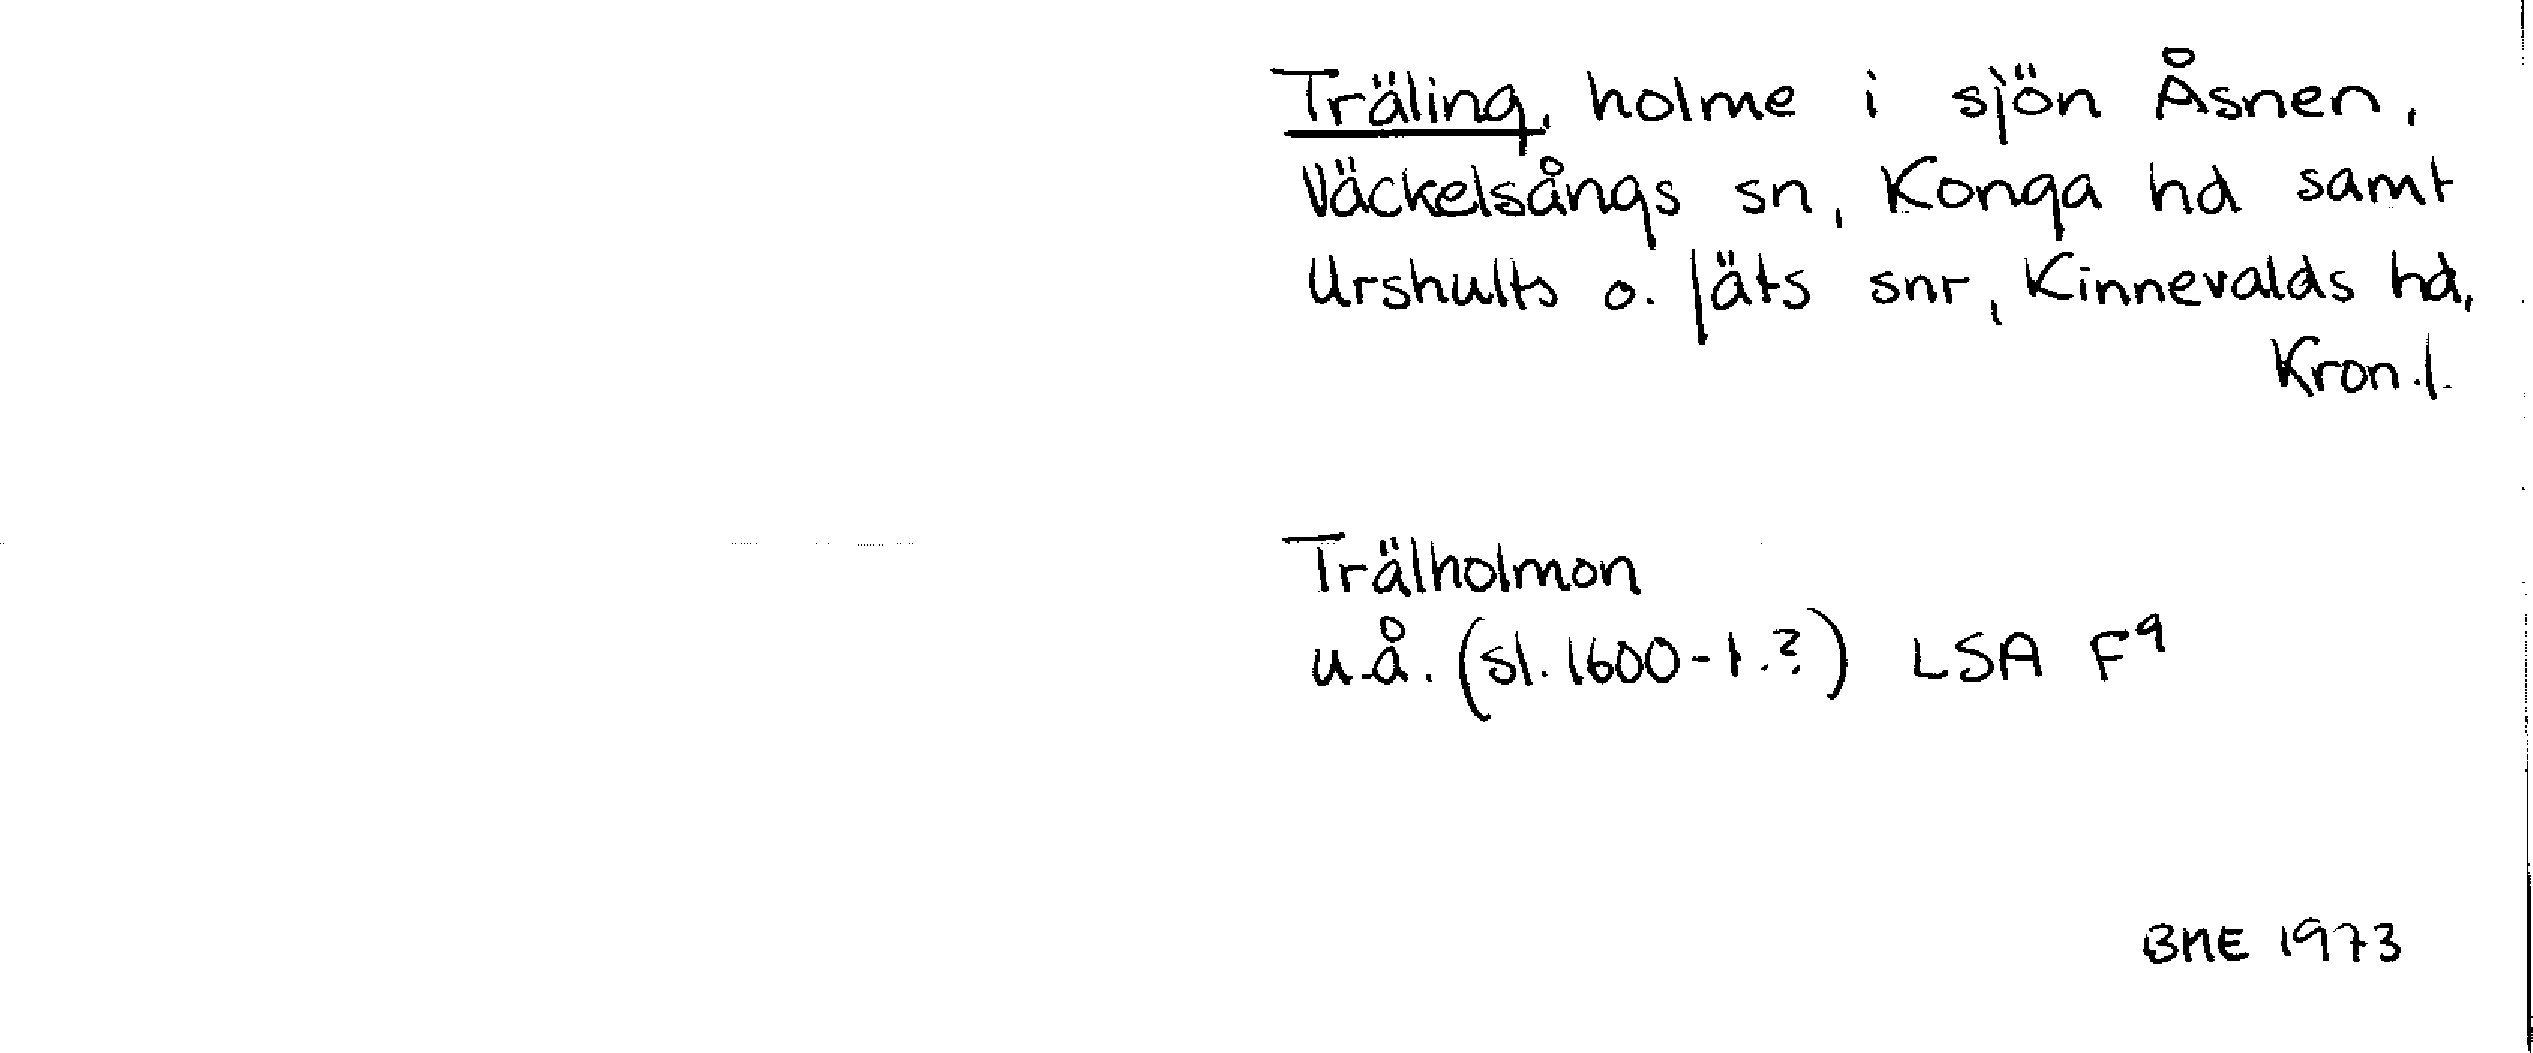 Träling, holme i sjön Åsnen,
Väckelsångs sn, Konga hd samt
Urshults o. Jäts snr, Kinnevalds hd,
Kron.l.
Trälholmon
u.å. (sl. 1600-t.?) LSA F9
BME 1973